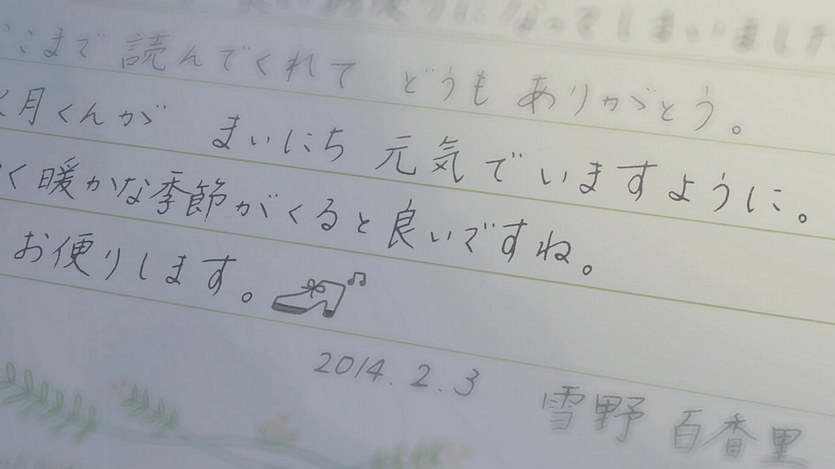 なってしまいました
ここまで読んでくれて どうもありがとう。
月くんが まいにち 元気でいますように。
く暖かな季節がくると良いですね。
お便りします。
2014.2.3
雪野 百香里